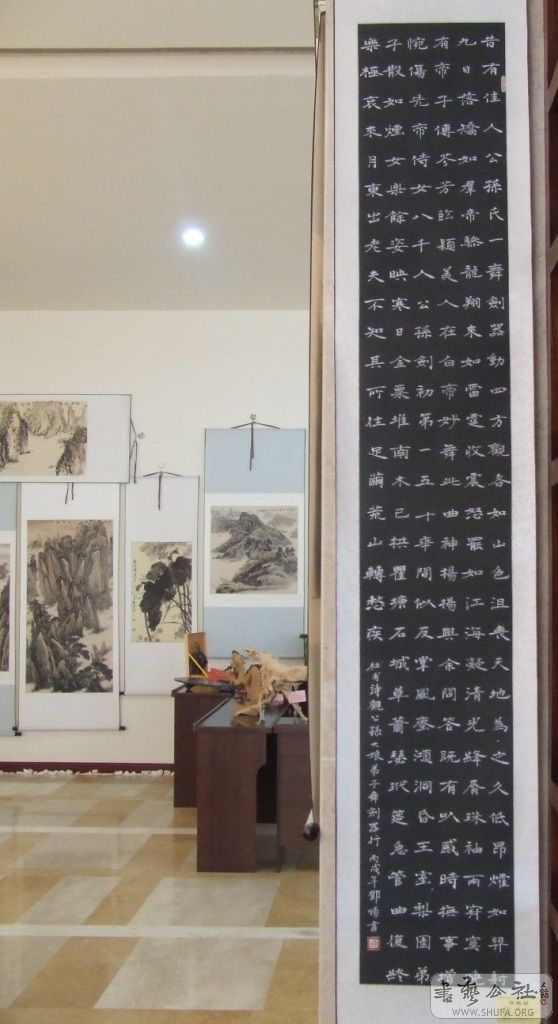 昔有佳人公孫氏一舞劍器動四方觀者如山色沮喪天地為之久低昂燿如羿射
九日落矯如羣帝驂龍翔來如雷霆收震怒罷如江海凝清光絳唇珠袖兩寂寞晚
有弟子傳芬芳臨潁美人在白帝妙舞此曲神楊楊與余問答既有以感時撫事增
惋傷先帝侍女八千人公孫劍初第一五十年間似反掌風塵澒洞昏王室梨園弟
子散如煙女樂餘姿映寒日金粟堆南木已拱瞿塘石城草蕭瑟玳筵急管曲復終
樂極哀來月東出老夫不知其所往足繭荒山轉愁疾
杜甫詩觀公孫大娘弟子舞劍器行 丙戌年 書
書藝公社
WWW.SHUFA.ORG